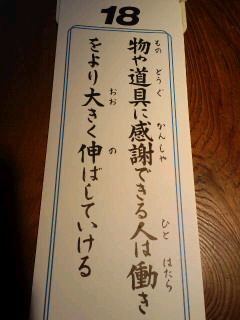 18
物や道具に感謝できる人は働き
をより大きく伸ばしていける
もの どうぐ かんしゃ ひと はたら
おお の